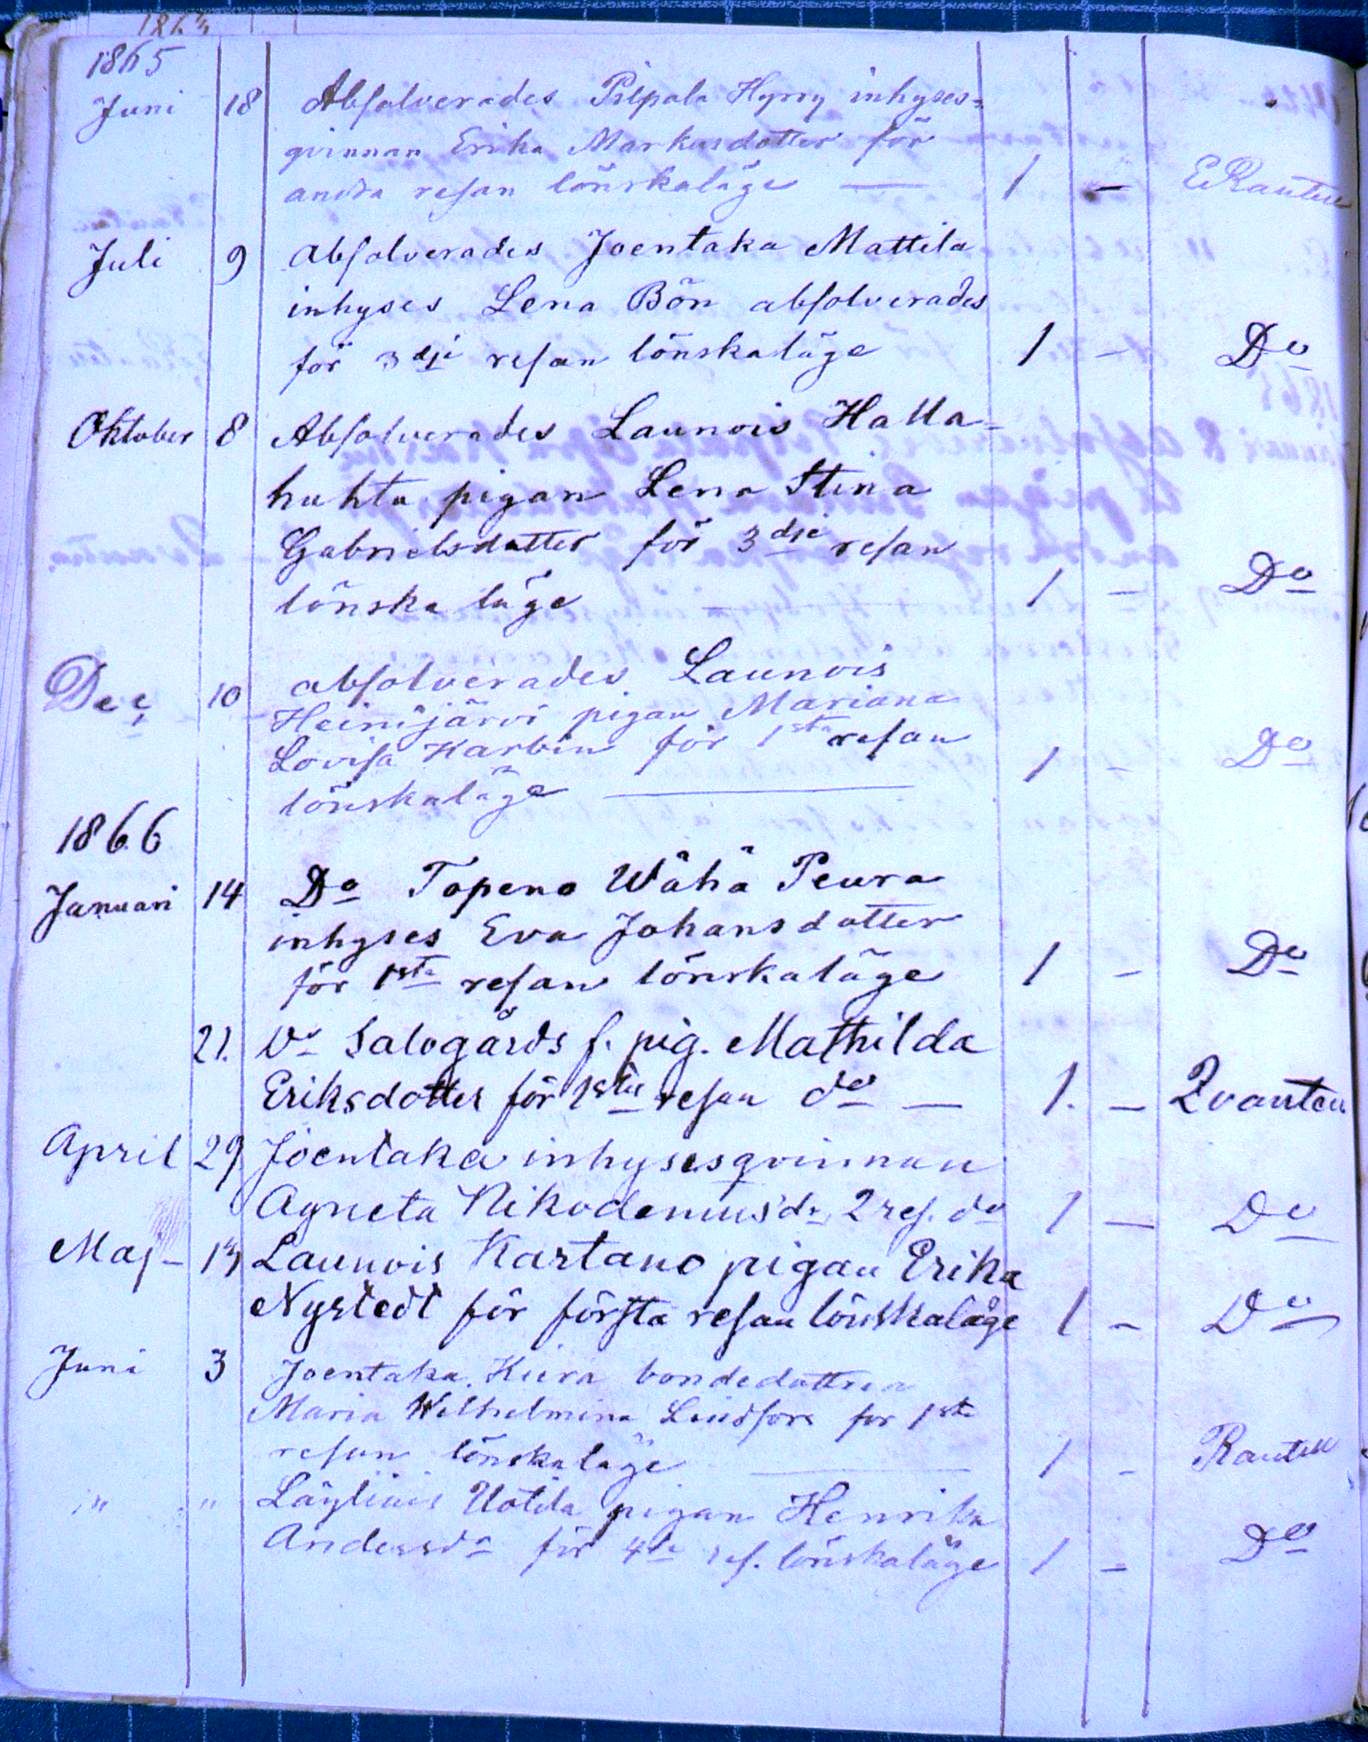 1865
Juni 18 Absolverades Pilpala Hyrry inhyses-
qvinnan Erika Markusdotter för
andra resan lönskaläge — 1 –
Juli 9 Absolverades Joentaka Mattila
inhyses Lena Bön absolverades
för 3dje resan lönskaläge 1 – Do
Oktober 8 Absolverades Launois Halla-
huhta pigan Lena Stina
Gabrielsdotter för 3dje resan
lönska läge — 1 – Do
Dec 10 absolverades Launois
Heinijärvi pigan Mariana
Lovisa Karbin för 1sta resan
lönskaläge — 1 – Do
1866
Januari 14 Do Topeno Wähä Peura
inhyses Eva Johansdotter
för 1sta resan lönskaläge 1 – Do
21. Do Salogårds f. pig. Mathilda
Eriksdotter för 1sta resan do — 1. – Qvanten
April 29 Joentaka inhysesqvinnan
Agneta Nikodemusdr 2 res. do 1 – Do
Maj – 13 Launois Kartano pigan Erika
Nystedt för första resan lönskaläge 1 – Do
Juni 3 Joentaka Kiera bondedottren
Maria Wilhelmina Lindfors för 1sta
resan lönskaläge — 1 – Rautell
" " Läyliäis Uotila pigan Henrika
Andersdr för 4de res. lönskaläge 1 – Do